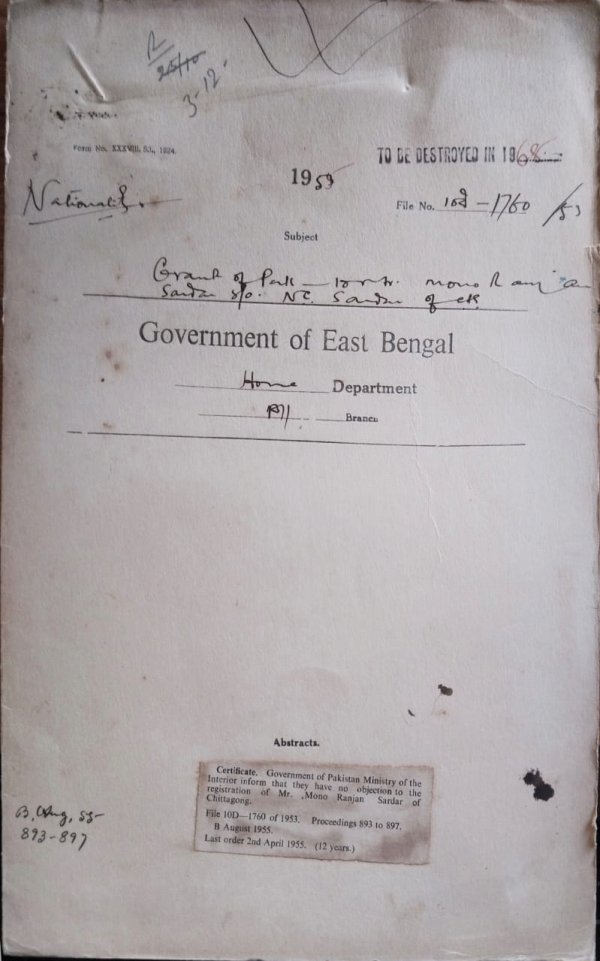 R
25/10
3-12.
Form No. XXXVIII, S.L., 1924.
TO BE DESTROYED IN 1968
1953
Nationality.
File No. 10D-1760/53
Subject
Grant of Pak — to Mr. Mono Ranjan
Sardar s/o. N.C. Sardar of
Government of East Bengal
Home Department
Branch
Abstracts.
Certificate. Government of Pakistan Ministry of the
Interior inform that they have no objection to the
registration of Mr. ,Mono Ranjan Sardar of
Chittagong.
File 10D—1760 of 1953. Proceedings 893 to 897.
B August 1955.
Last order 2nd April 1955. (12 years.)
B, Aug, 55-
893-897